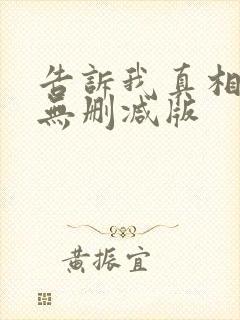 告訴我真相
無删减版
黃振宜